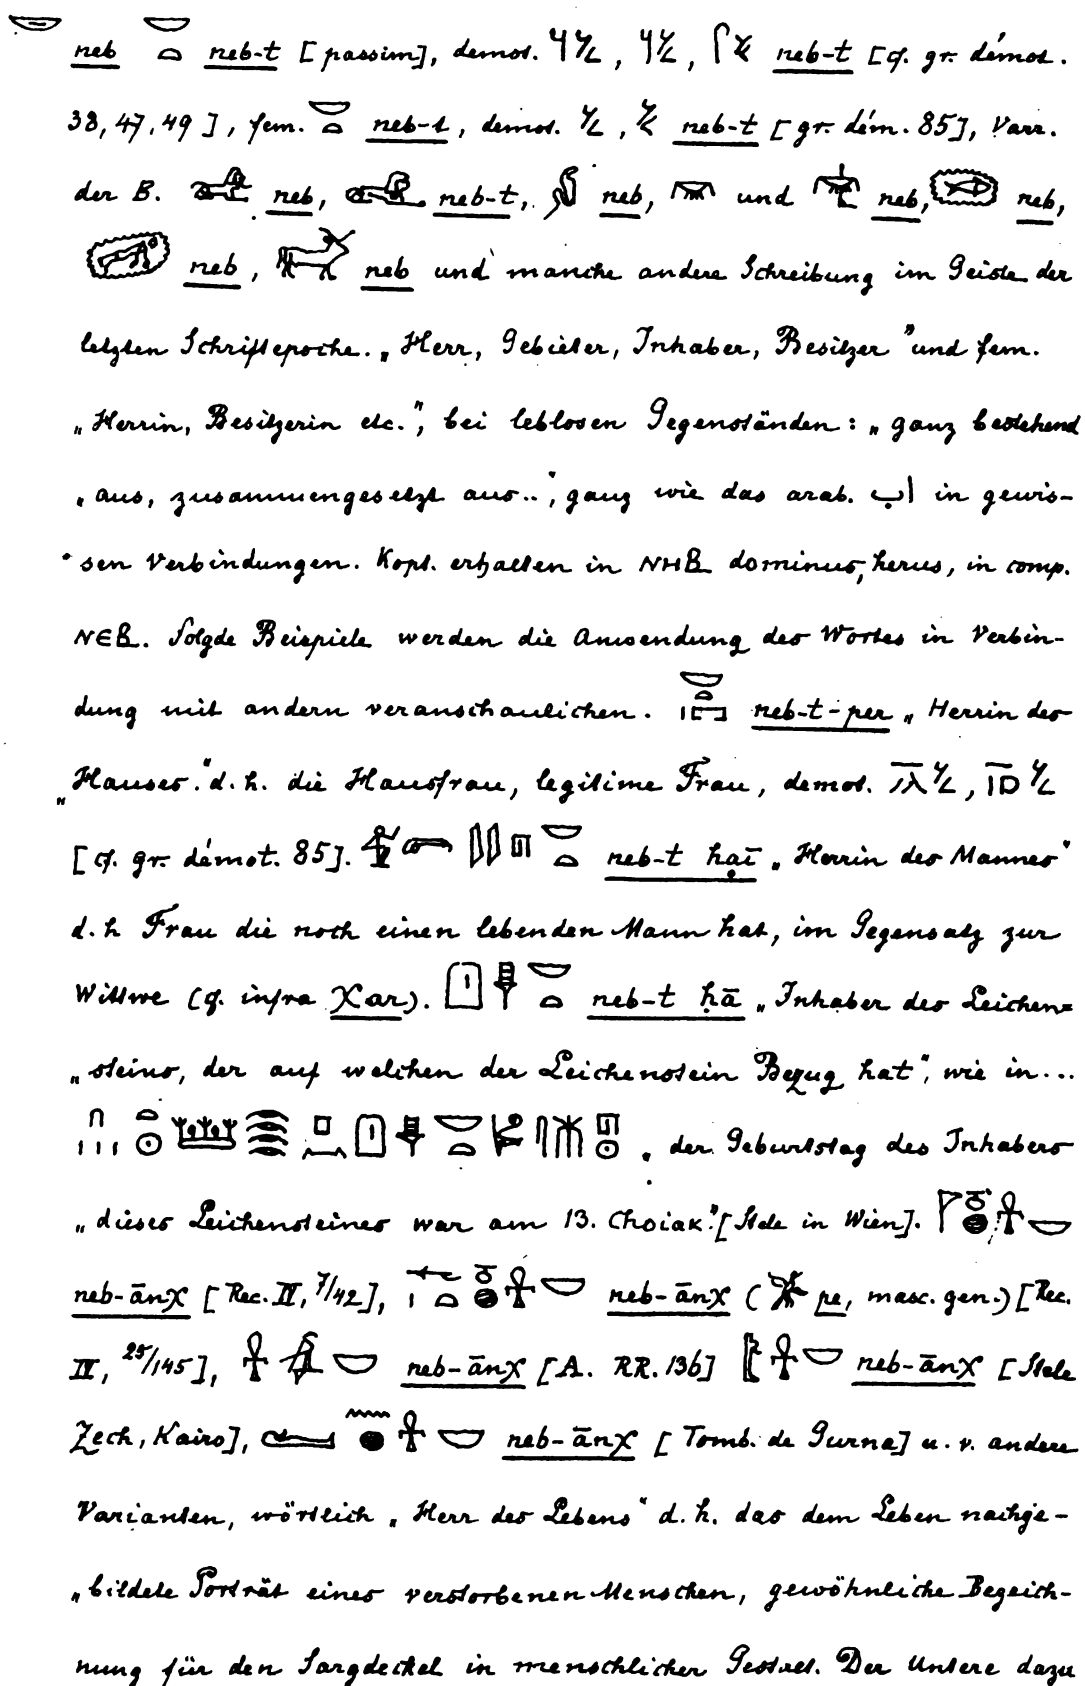 neb neb-t [passim], demot. neb-t [cf. gr. démot.
38, 47, 49], fem. neb-t, demot. neb-t [gr. dém. 85], Varr.
der B. neb, neb-t, neb, und neb, neb,
neb, neb und manche andere Schreibung im Geiste der
letzten Schriftepoche. „Herr, Gebieter, Inhaber, Besitzer" und fem.
„Herrin, Besitzerin etc.", bei leblosen Gegenständen: „ganz bestehend
„aus, zusammengesetzt aus..", ganz wie das arab. اب in gewis-
sen Verbindungen. Kopt. erhalten in ⲚⲎⲂ dominus, herus, in comp.
ⲚⲈⲂ. Folgde Beispiele werden die Anwendung des Wortes in Verbin-
dung mit andern veranschaulichen. neb-t-per „Herrin des
„Hauses" d. h. die Hausfrau, legitime Frau, demot.
[cf. gr. démot. 85]. neb-t ḥaī „Herrin des Mannes"
d. h Frau die noch einen lebenden Mann hat, im Gegensatz zur
Wittwe (cf. infra χar). neb-t ḥā „Inhaber des Leichen=
„steins, der auf welchen der Leichenstein Bezug hat", wie in...
„der Geburtstag des Inhabers
„dieses Leichensteines war am 13. Choiak" [Stele in Wien].
neb-ānχ [Rec. IV, 7/42], neb-ānχ (pe, masc. gen.) [Rec.
IV, 25/145], neb-ānχ [A. RR. 136] neb-ānχ [Stele
Zech, Kairo], neb-ānχ [Tomb. de Gurna] u. v. andere
Varianten, wörtlich „Herr des Lebens" d. h. das dem Leben nachge-
„bildete Porträt eines verstorbenen Menschen, gewöhnliche Bezeich-
nung für den Sargdeckel in menschlicher Gestalt. Der Untere dazu